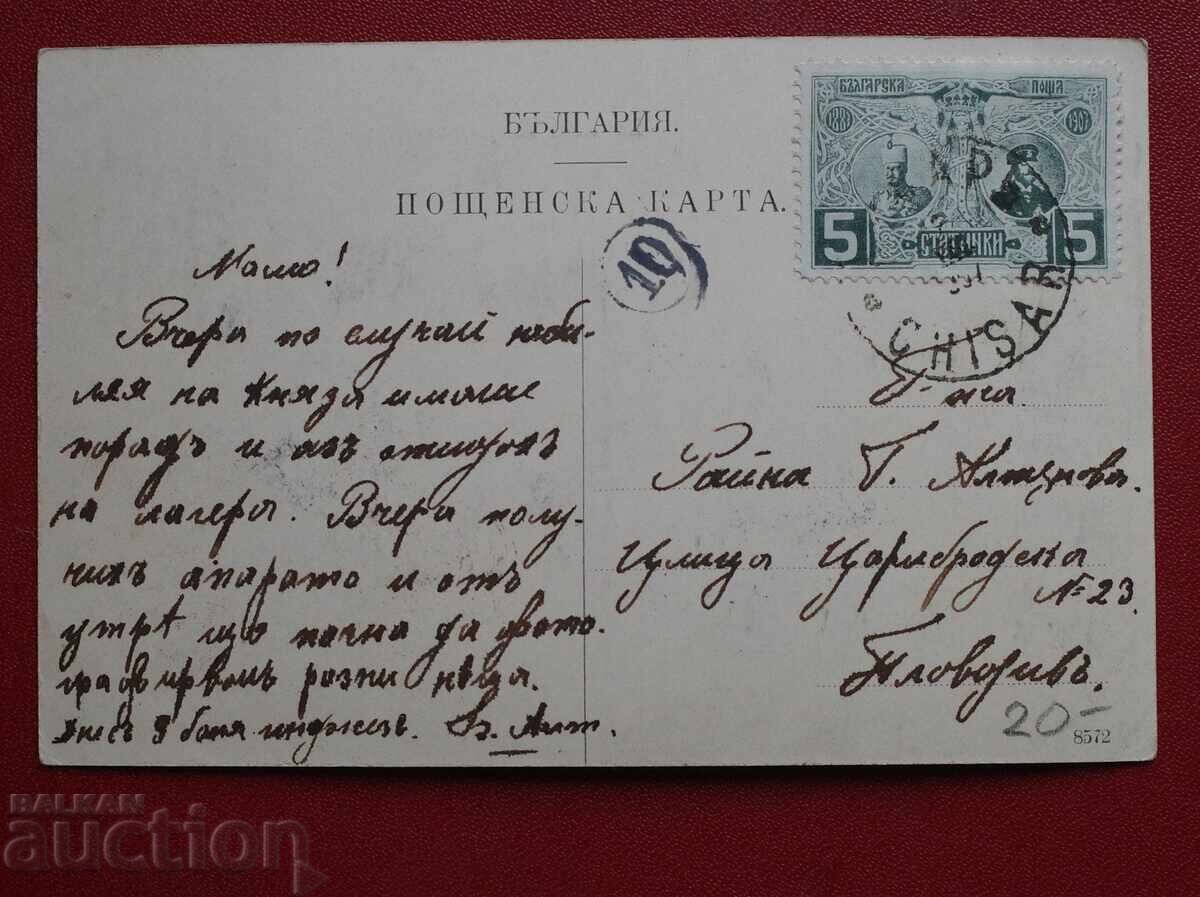 БЪЛГАРИЯ.
ПОЩЕНСКА КАРТА.
БЪЛГАРСКА ПОША
1887 1907
5 СТОТИНКИ 5
10
CHISAR
Мамо!
Вчера по случай юби-
лея на Княза имаше
парадъ и азъ отидохъ
на лагера. Вчера полу-
чихъ апарато и отъ
утрѣ що почна да фото-
графирвамъ разни нѣща.
Днесъ 8 баня
Г-жа
Райна Г.
Улица Царибродска
№ 23.
Пловдивъ.
20-
8572
BALKAN
auction